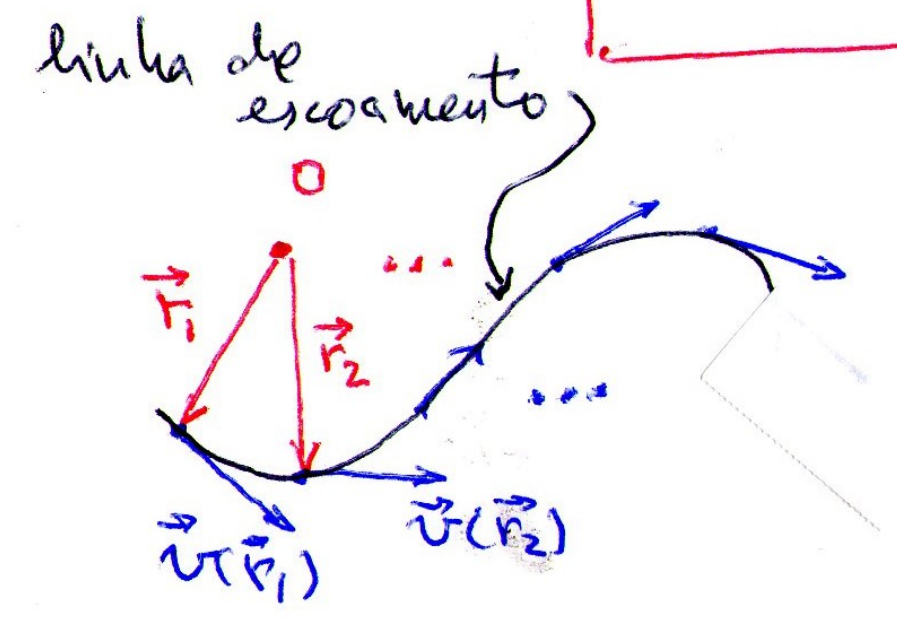 linha de
escoamento
O
...
r⃗₁
r⃗₂
...
v⃗(r⃗₁)
v⃗(r⃗₂)